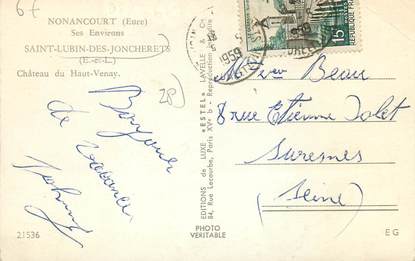 67
NONANCOURT (Eure)
Ses Environs
SAINT-LUBIN-DES-JONCHERETS
(E.-et-L.)
Château du Haut-Venay.
28
Bonjour
de vacances
Johnny
21536
EDITIONS de LUXE "ESTEL" LAVELLE & C
84, Rue Lecourbe, Paris XVe b Reproduction interdite
PHOTO
VERITABLE
1959
15
Mme Vve Beau
8 rue Etienne Dolet
Suresnes
(Seine)
EG